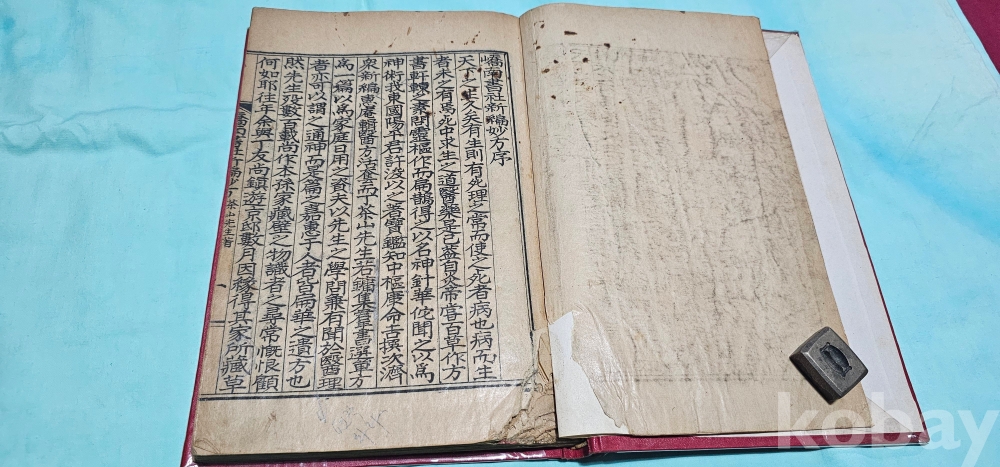 嶠南書社新編妙方序
天下之生久矣有生則有死理之常而使之死者病也病而生
者未之有爲死中求生之道醫藥是已蓋自炎帝嘗百草作方
書軒轅素問靈樞作而扁鵲得之以名神針華佗聞之以爲
神術我東國陽平君許浚以之著寶鑑知中樞康命吉撰次濟
衆新編惠庵輯醫方活套而丁茶山先生若鏞集羣書選單方
爲一篇以備家庭日用之資夫以先生之學問兼有聞於醫理
者亦可以謂之通神而是篇之嘉惠于人者皆扁華之遺方也
肰先生沒數百載尚作本孫家藏壁之物識者之尋常慨恨顧
何如耶往年余與丁友尚鎮遊京邸數月因稼得其家所藏草
茶山先生著
kobay